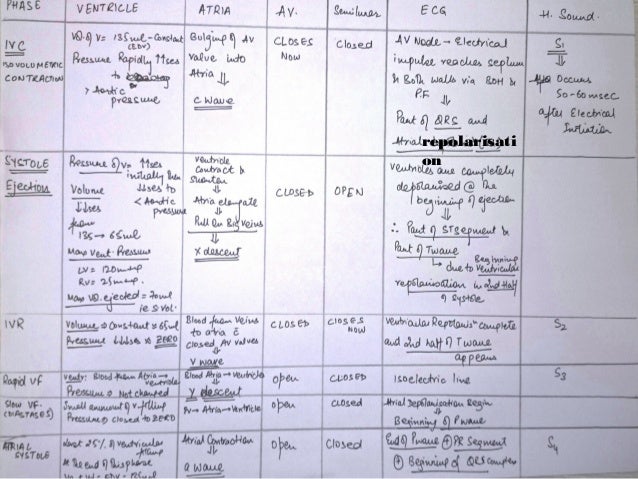 PHASE VENTRICLE ATRIA AV. Semilunar ECG H. Sound.
IVC
ISOVOLUMETRIC
CONTRACTION
VO. of V = 135ml - Constant
(EDV)
Pressure Rapidly ↑↑ses
to
> Aortic
pressure
Bulging of AV
valve into
Atria ⇓
C wave
CLOSES
Now
Closed
AV Node → Electrical
impulse reaches septum
& Both walls via BOH &
P.F
⇓
Part of QRS and
Atrial repolarisati
on
S1
⇓
Occurs
50-60msec
after Electrical
Initiation
SYSTOLE
Ejection
Pressure of V = ↑↑ses
initially then
↓↓ses to
< Aortic
pressure
Volume
↓↓ses
from
135 → 65ml
Max Vent. Pressure
LV = 120mmHg
RV = 25mmHg.
Max VO. ejected = 70ml
ie S. Vol.
Ventricle
Contract &
Shorten
⇓
Atria elongate
⇓
Pull on Big Veins
⇓
X descent
CLOSED
OPEN
Ventricles are completely
depolarised @ the
beginning of ejection
⇓
∴ Part of ST Segment &
Part of T wave
↳ due to Beginning
Ventricular
repolarisation in 2nd Half
of Systole
IVR
Volume ⇒ Constant ≈ 65ml
Pressure ↓↓↓ses ≈ ZERO
Blood from Veins
to atria c̄
closed AV valves
⇓
V wave
CLOSED
CLOSES
NOW
Ventricular Repolarisn complete
and 2nd half of T wave
appears
S2
Rapid VF
Ventr: Blood from Atria →
ventricle
Pressure ⇒ Not changed
Blood Atria → Ventricle
⇓
Y descent
open
CLOSED
Isoelectric line
S3
Slow VF.
(DIASTASES)
Small amount of V-filling
Pressure ⇒ closed to ZERO
PV → Atria → Ventricle
open
CLOSED
Atrial Depolarisation Begin
⇓
Beginning of P wave
ATRIAL
SYSTOLE
Last 25% of Ventricular
filling
At the end of this phase
Atrial Contraction
⇓
a wave
open
Closed
End of P wave ⊕ PR Segment
⊕ Beginning of QRS complex
S4